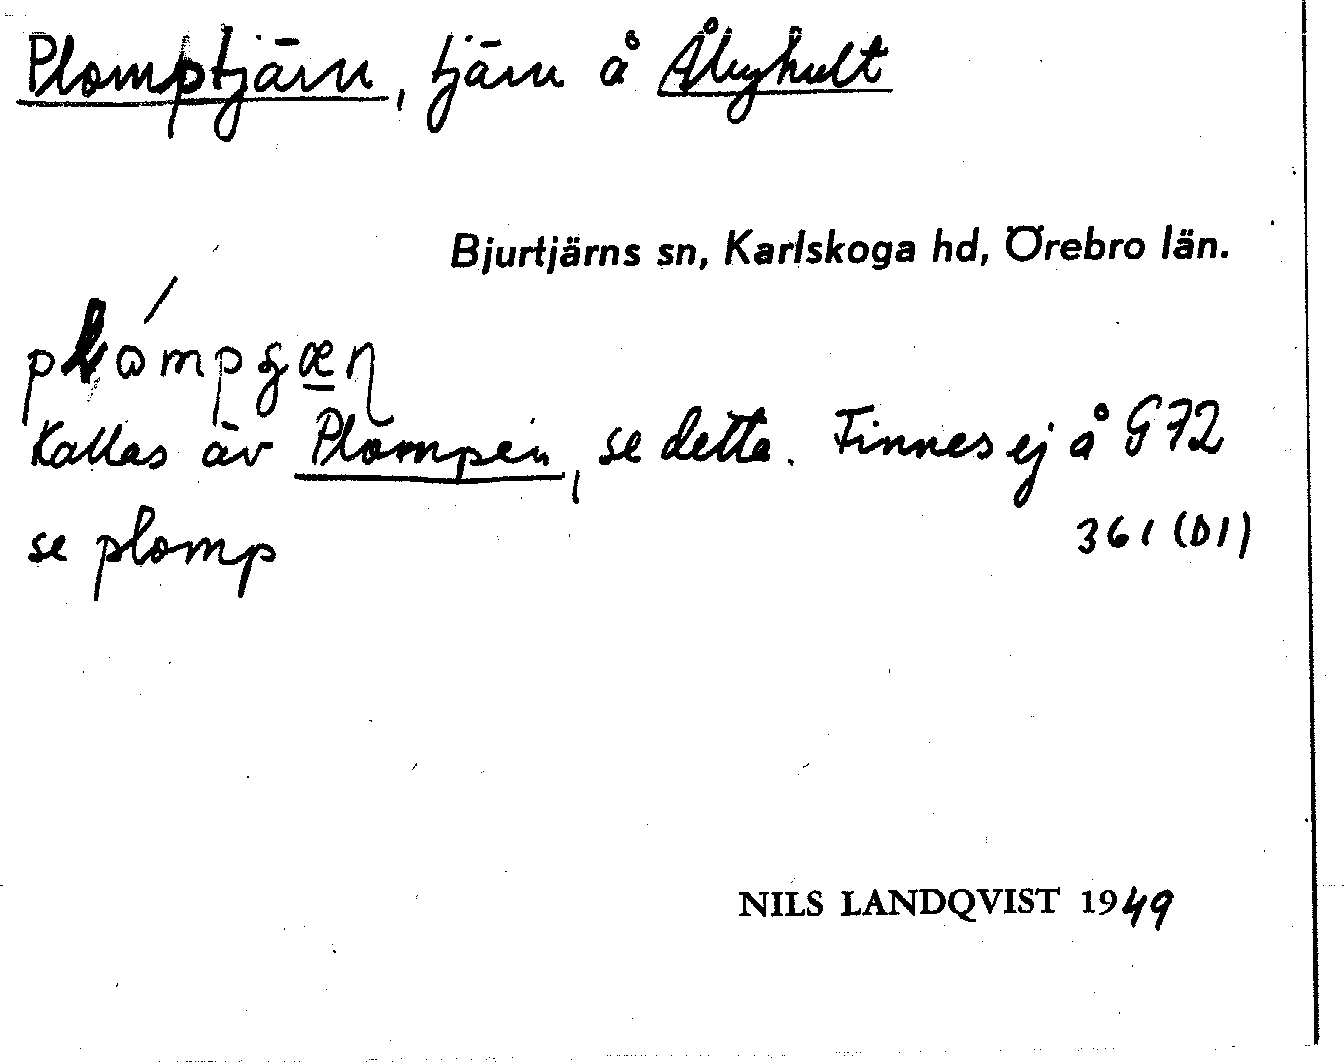 Plomptjärn, tjärn å Ålughult
Bjurtjärns sn, Karlskoga hd, Örebro län.
Kallas äv Plompen, se detta. Finnes ej å G72
361 (D1)
se plomp
NILS LANDQVIST 1949